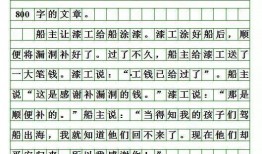 800 字的文章。
船主让漆工给船涂漆。漆工涂好船后，顺
便将漏洞补好了。过了不久，船主给漆工送了
一大笔钱。漆工说：“工钱已给过了”。船主
说“这是感谢补漏洞的钱”。漆工说：“那是
顺便补的。”船主说：“当得知我的孩子们驾
船出海，我就知道他们回不来了。现在他们却